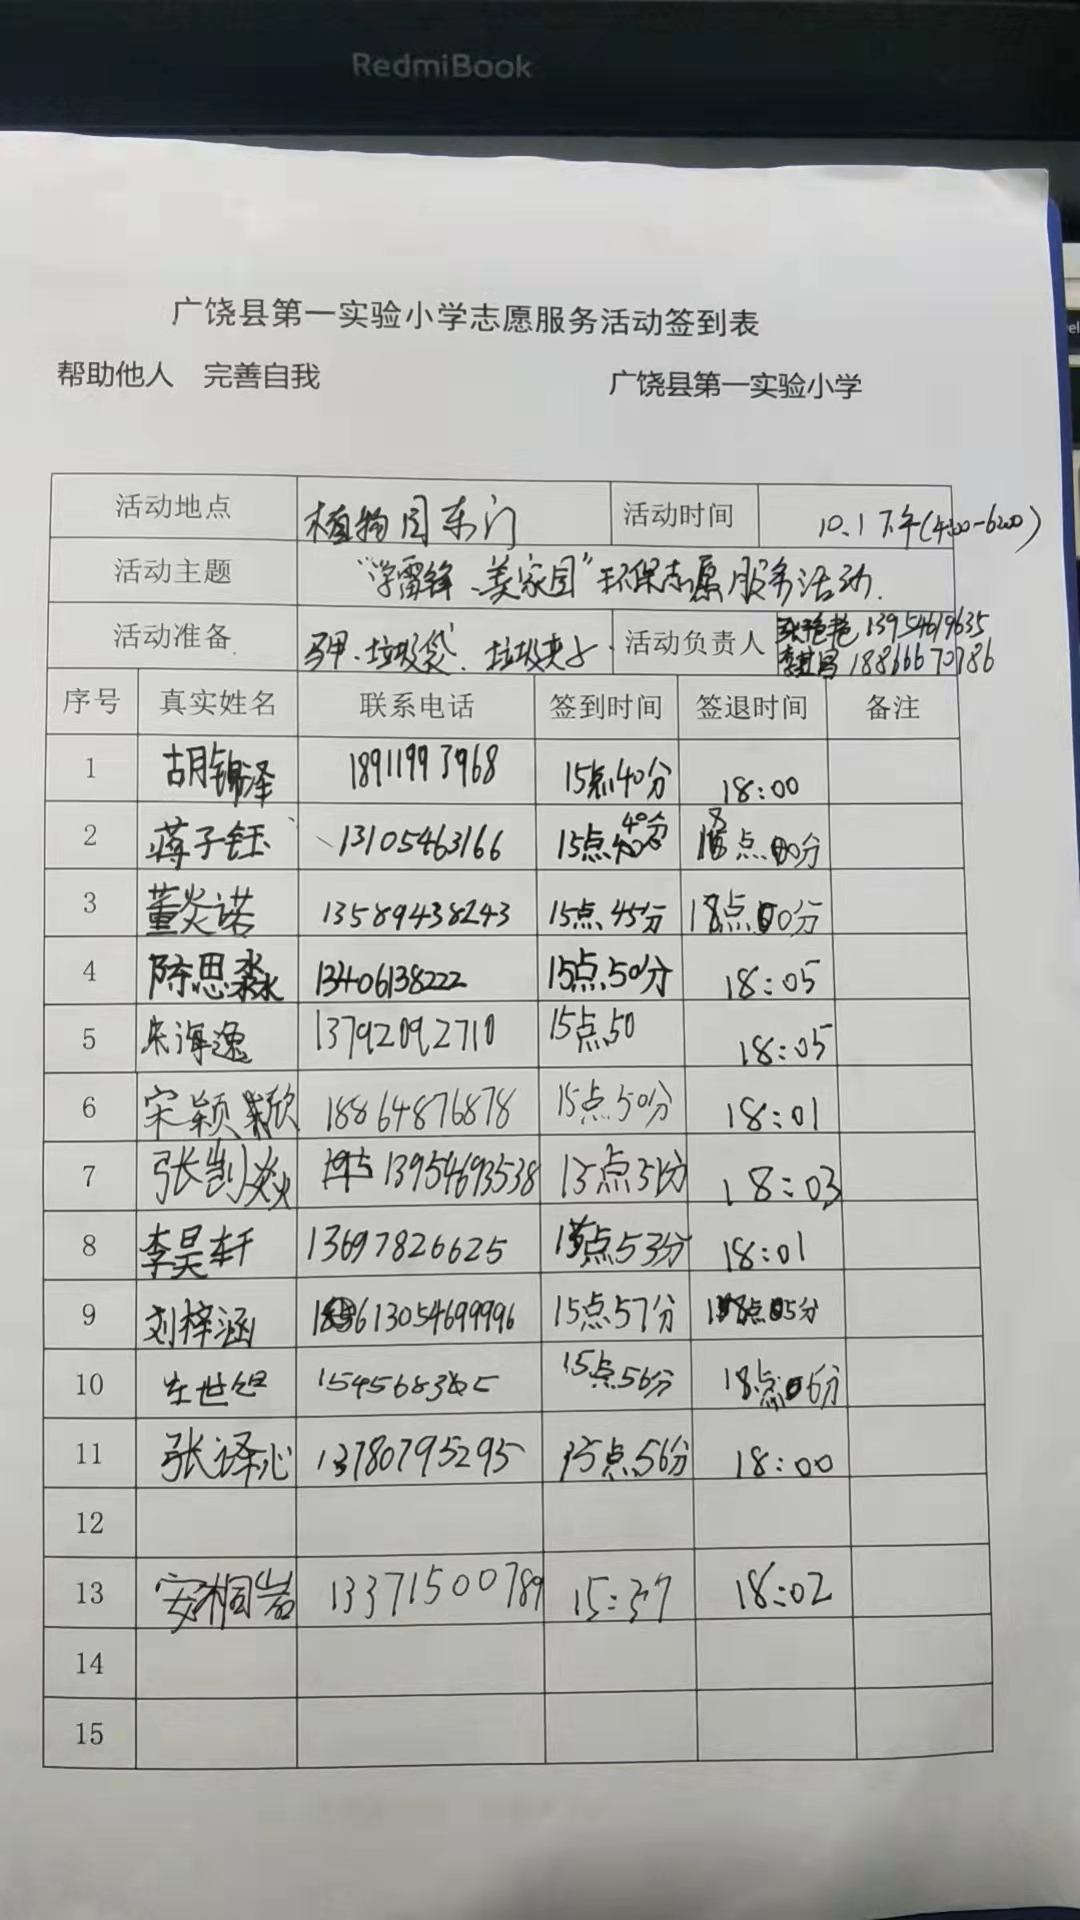 RedmiBook
广饶县第一实验小学志愿服务活动签到表
帮助他人 完善自我 广饶县第一实验小学
活动地点 植物园东门 活动时间 10.1下午(4:00-6:00)
活动主题 "学雷锋、美家园"环保志愿服务活动.
活动准备 马甲、垃圾袋、垃圾夹子. 活动负责人 张艳艳 13954619635
18866670786
序号 真实姓名 联系电话 签到时间 签退时间 备注
1 胡锦泽 18911993968 15点40分 18:00
2 蒋子钰 13105463166 15点40分 18点00分
3 董炎诺 13589438243 15点45分 18点00分
4 陈思淼 13406138222 15点50分 18:05
5 海逸 13792092710 15点50 18:05
6 宋颖欣 18864876878 15点50分 18:01
7 张凯焱 13954693538 15点51分 18:03
8 李昊轩 13697826625 15点53分 18:01
9 刘梓涵 13054699996 15点57分 18点05分
10 15点56分 18点06分
11 张译心 13780795295 15点56分 18:00
12
13 安桐岩 13371500789 15:57 18:02
14
15